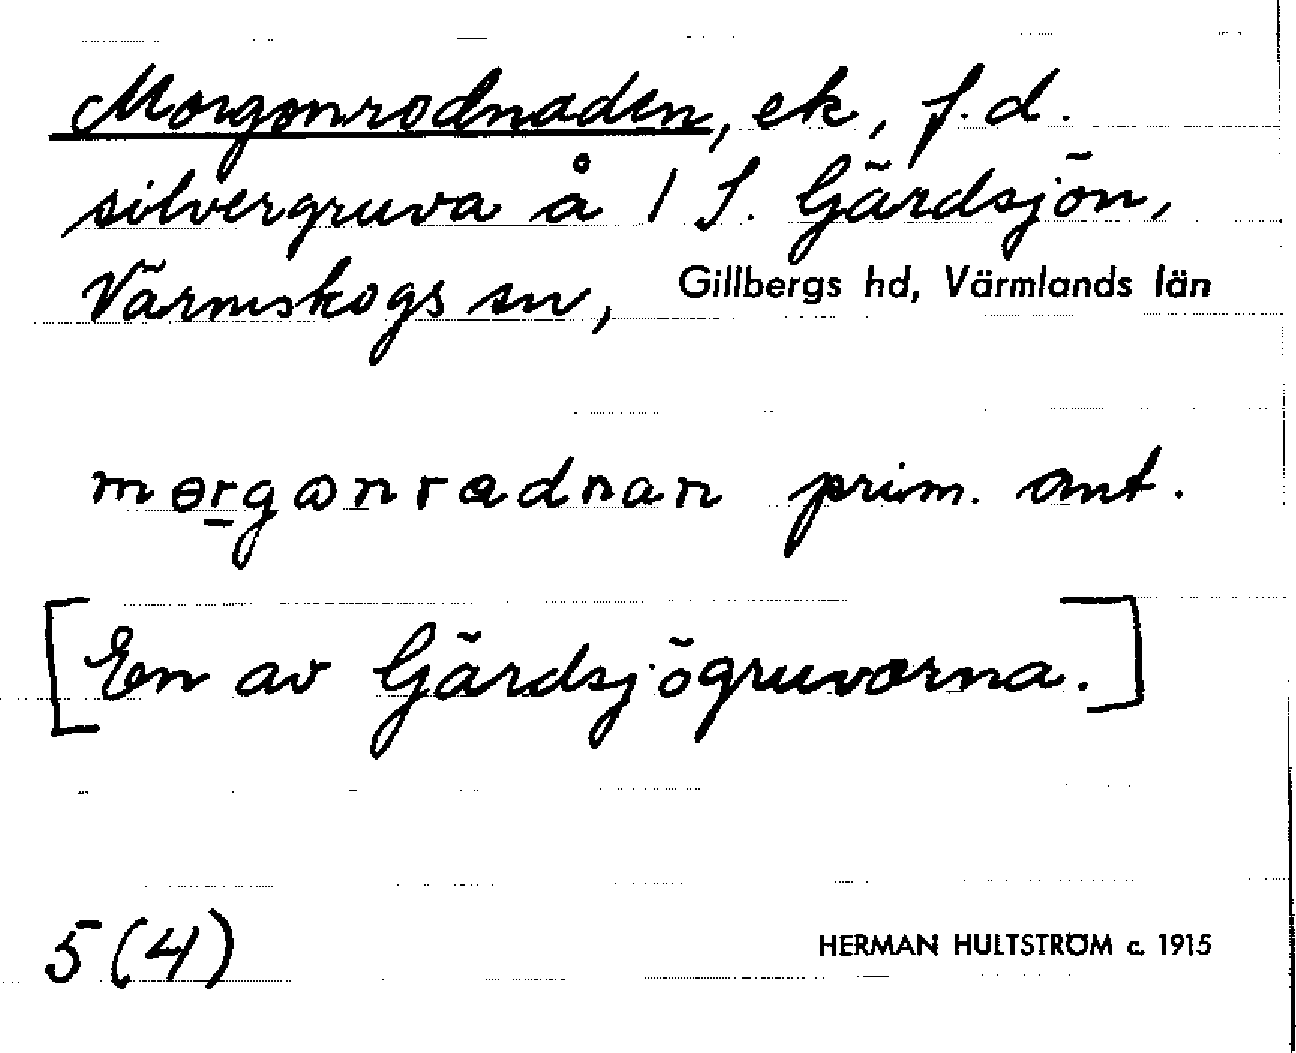 Morgonrodnaden, ek, f.d.
silvergruva å 1 S. Gärdsjön,
Värmskogs sn, Gillbergs hd, Värmlands län
morgonradnan prim. ant.
[En av Gärdsjögruvorna.]
5 (4) HERMAN HULTSTRÖM c. 1915